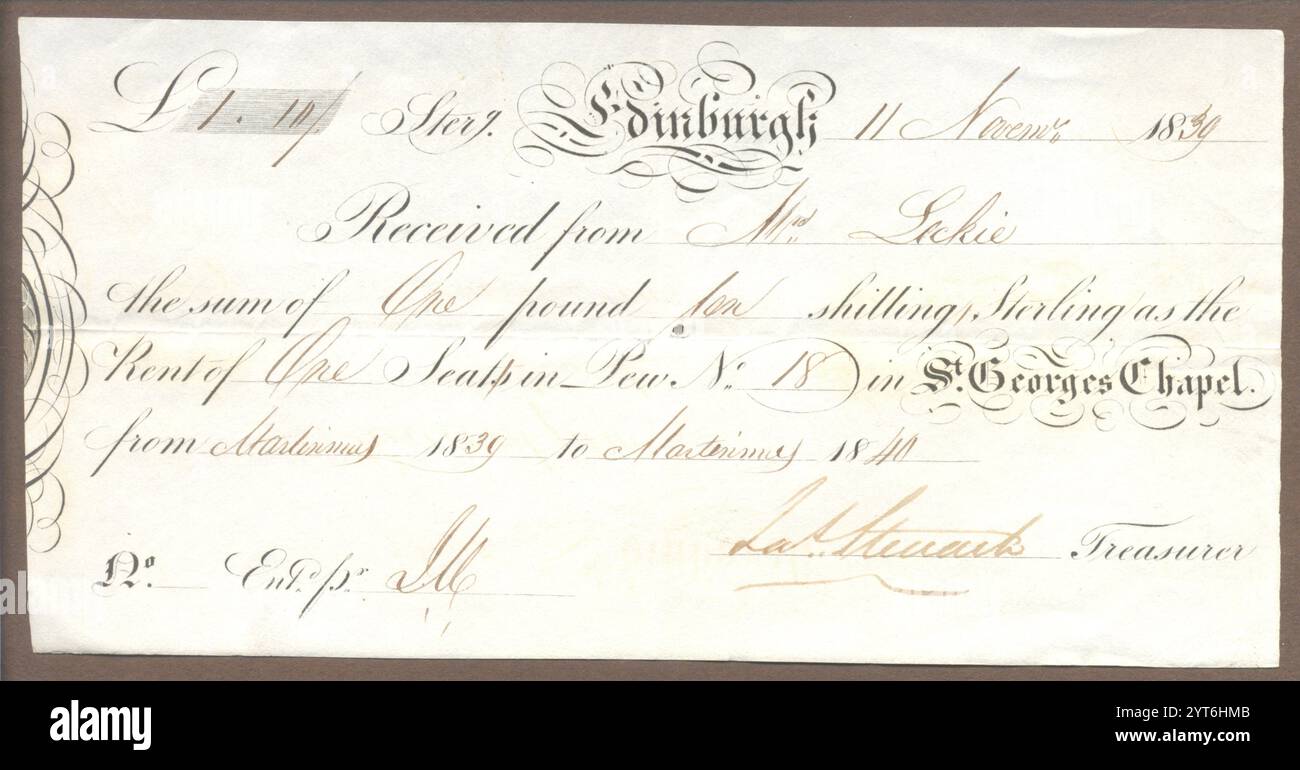 £ 1. 10/ Sterg. Edinburgh 11 Novemr. 1839
Received from Mrs. Leckie
the sum of One pound ten shillings Sterling as the
Rent of One Seat in Pew No. 18 in St. Georges Chapel.
from Martinmas 1839 to Martinmas 1840
Jas. Steuart Treasurer
No. Entd. pr.
alamy
Image ID: 2YT6HMB
www.alamy.com